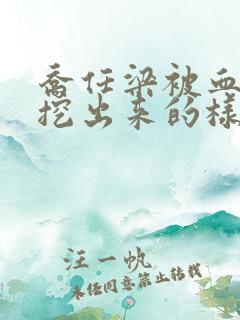 乔任梁被血
挖出来的样
汪一帆
未经同意禁止转载